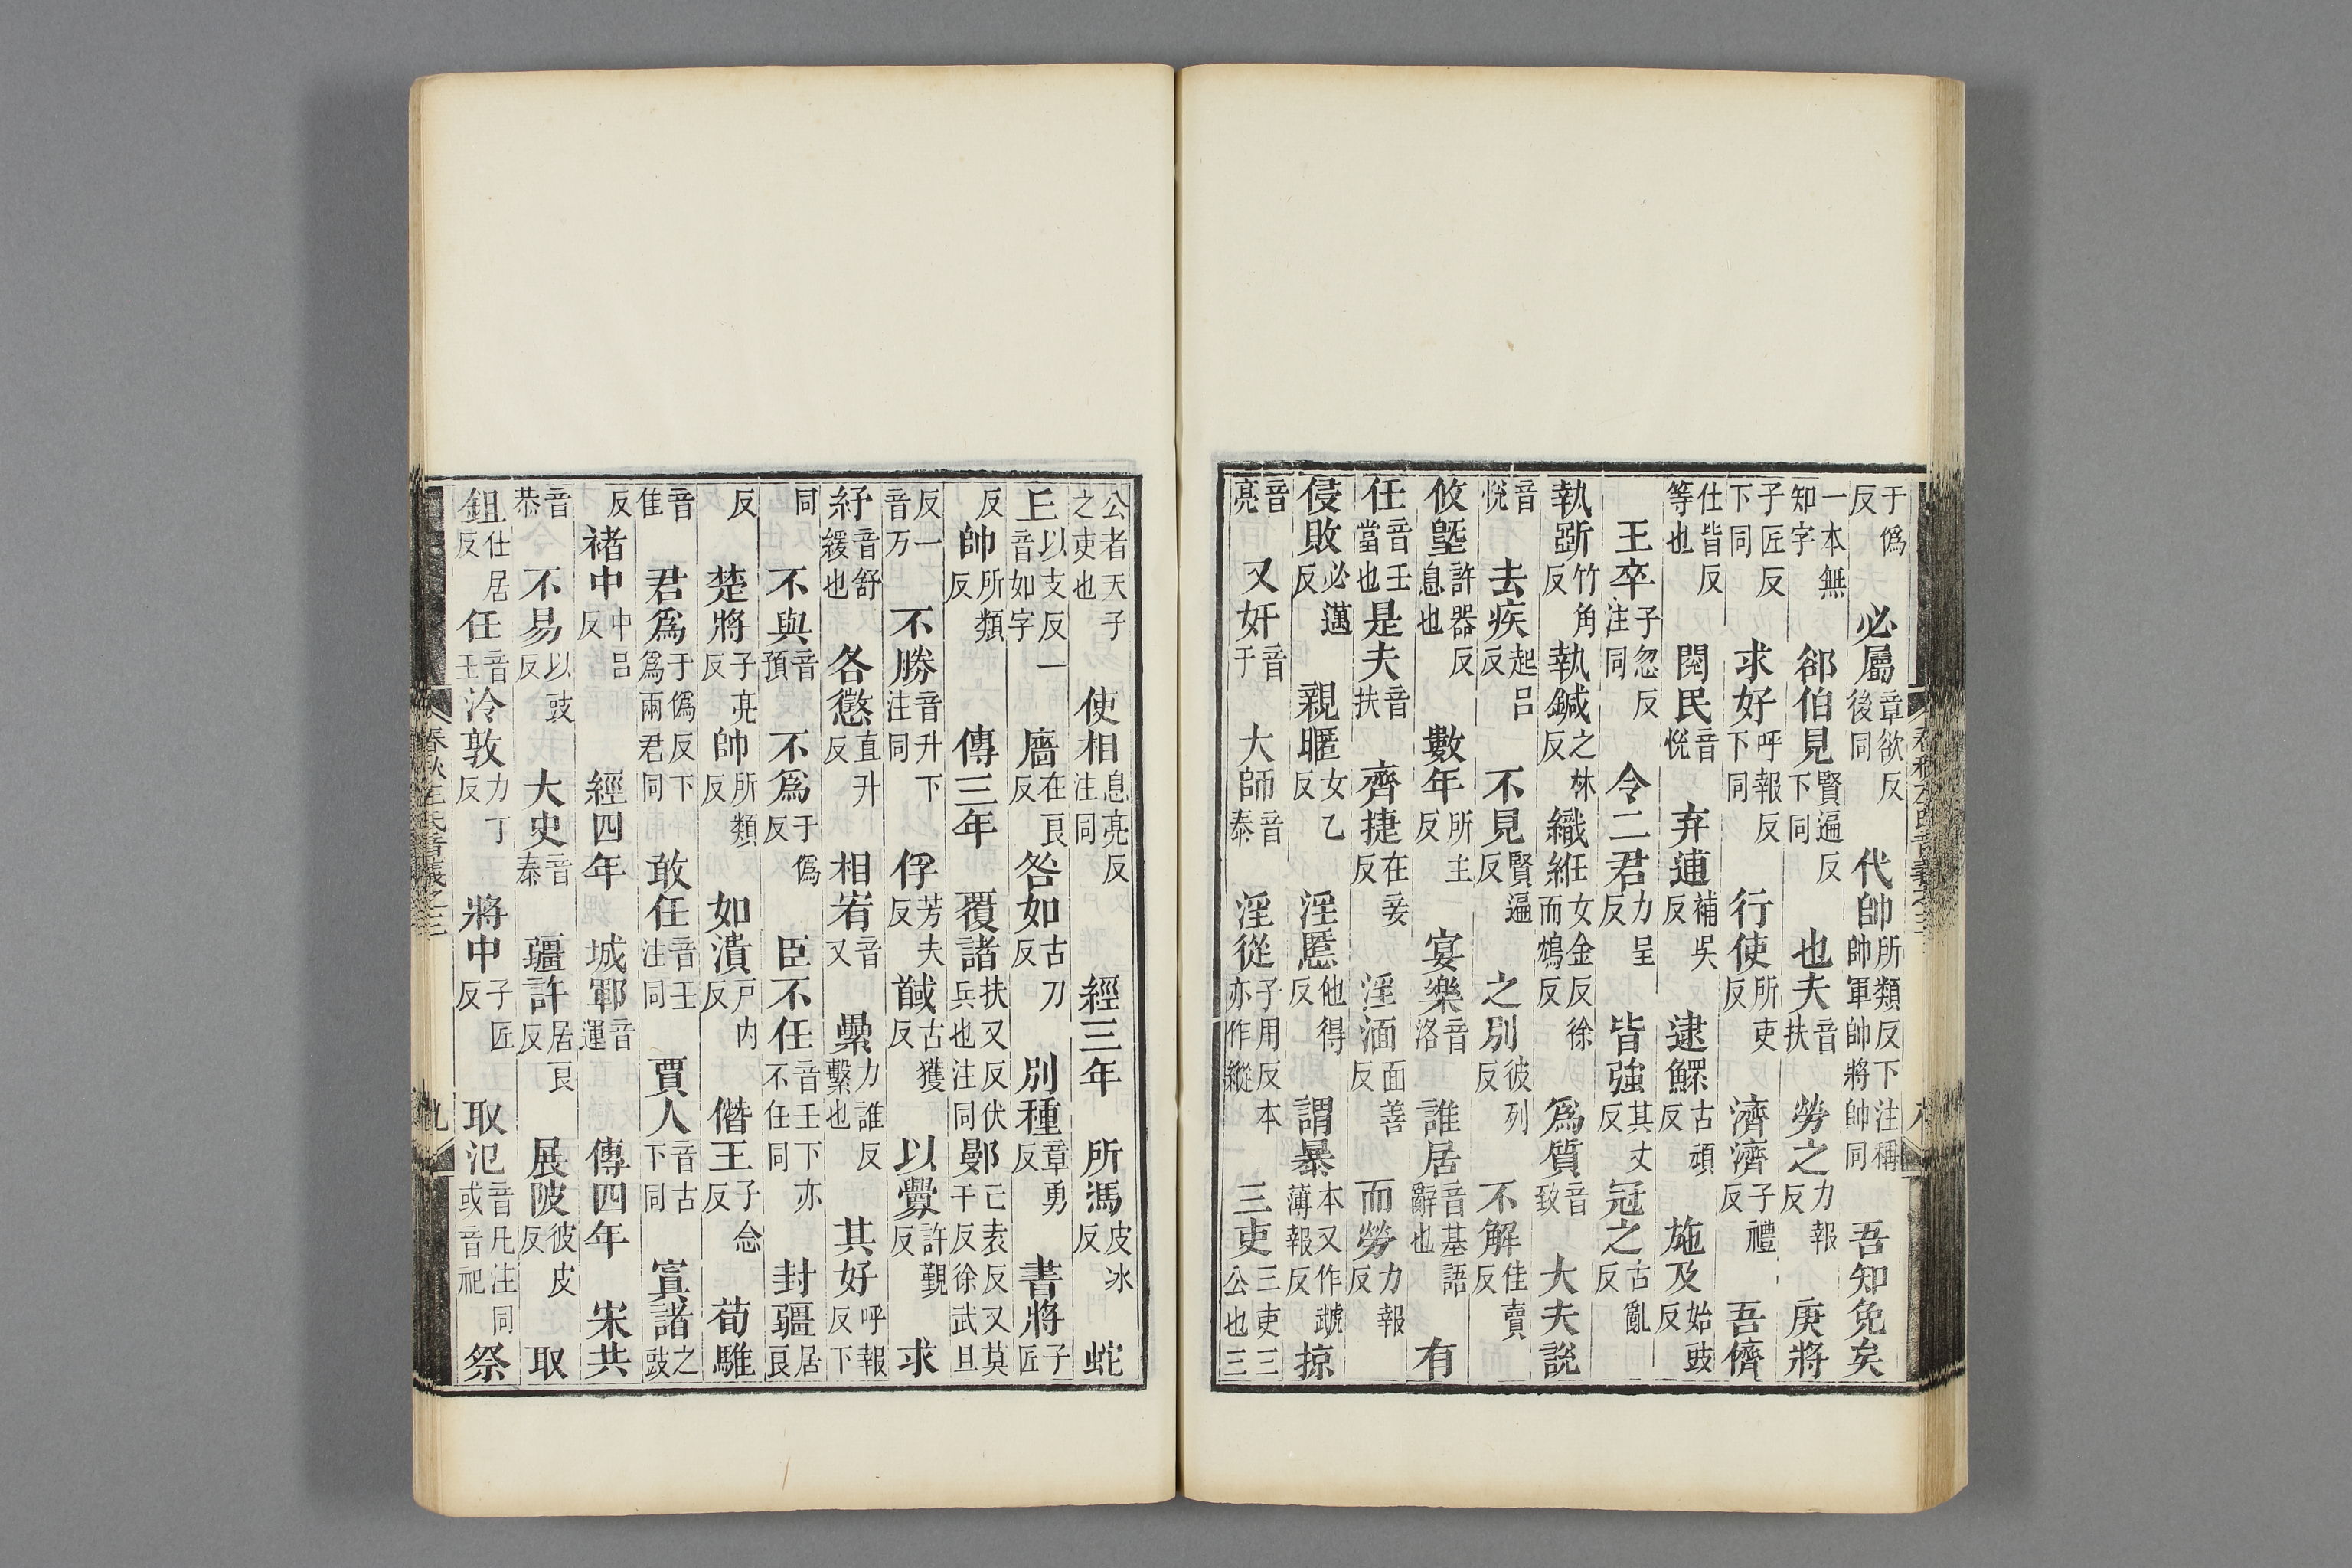 于偽反 必屬章欲反後同 代帥所類反下注稱帥軍帥將帥同 吾知免矣
一本無知字 郤伯見賢遍反下同 也夫音扶 勞之力報反 庚將
子匠反下同 求好呼報反下同 行使所吏反 濟濟子禮反 吾儕
仕皆反等也 閱民音悅 弃逋補吳反 逮鰥古頑反 施及始豉反
王卒子忽反注同 令二君力呈反 皆強其丈反 冠之古亂反
執斲竹角反 執鍼之林反 織紝女金反徐而鴆反 爲質音致 大夫說
音悅 去疾起呂反 不見賢遍反 之別彼列反 不解佳賣反
攸塈許器反息也 數年所主反 宴樂音洛 誰居音基語辭也 有
任音壬當也 是夫音扶 齊捷在妾反 淫湎面善反 而勞力報反
侵敗必邁反 親暱女乙反 淫慝他得反 謂暴本又作虣薄報反 掠
音亮 又奸音干 大師音泰 淫從子用反本亦作縱 三吏三吏三公也三
公者天子之吏也 使相息亮反注同 經三年 所馮皮冰反 蛇
丘以支反一音如字 廧在良反 咎如古刀反 別種章勇反 書將子匠
反 帥所類反 傳三年 覆諸扶又反伏兵也注同 鄤亡袁反又莫干反徐武旦
反一音万 不勝音升下注同 俘芳夫反 馘古獲反 以釁許覲反 求
紓音舒緩也 各懲直升反 相宥音又 纍力誰反繫也 其好呼報反下
同 不與音預 不爲于偽反 臣不任音壬下亦不任同 封疆居良
反 楚將子亮反 帥所類反 如潰戶內反 僭王子念反 荀騅
音隹 君爲于偽反下爲兩君同 敢任音壬注同 賈人音古下同 寘諸之豉
反 褚中中呂反 經四年 城鄆音運 傳四年 宋共
音恭 不易以豉反 大史音泰 疆許居良反 展陂彼皮反 取
鉏仕居反 任音壬 泠敦力丁反 將中子匠反 取氾音凡注同或音祀 祭
春秋左氏音義之三 九